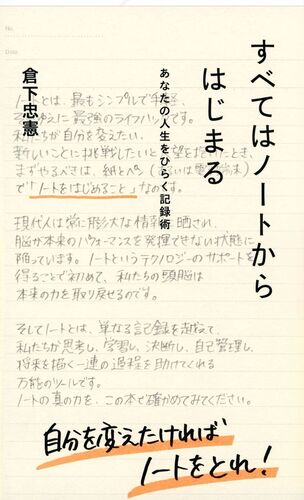 No.
Date
すべてはノートから
はじまる
あなたの人生をひらく記録術
倉下忠憲
ノートとは、最もシンプルで手軽、
それゆえに最強のライフハックです。
私たちが自分を変えたい、
新しいことに挑戦したいと
まずやるべきは、紙とペン
で「ノートをはじめること」なのです。
現代人は常に膨大な情報に晒され、
脳が本来のパフォーマンスを発揮できない状態に
陥っています。ノートというテクノロジーのサポートを
得ることで初めて、私たちの頭脳は
本来の力を取り戻せるのです。
そしてノートとは、単なる記録を越えて、
私たちが思考し、学習し、決断し、自己管理し、
将来を描く一連の過程を助けてくれる
万能のツールです。
ノートの真の力を、この本で確かめてみてください。
自分を変えたければ
ノートをとれ!